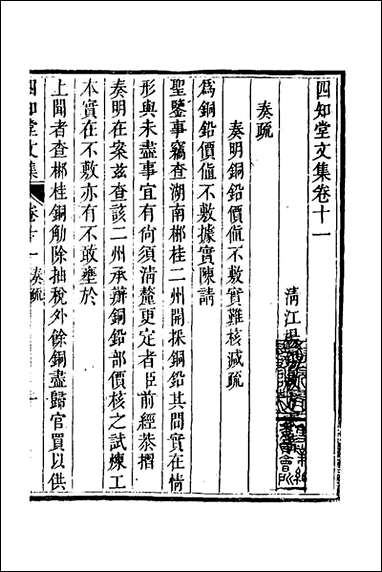 四知堂文集卷十一
清江楊
奏疏
奏明銅鉛價值不敷實難核減疏
為銅鉛價值不敷據實陳請
聖鑒事竊查湖南郴桂二州開採銅鉛其間實在情
形與未盡事宜有尚須清釐更定者臣前經恭摺
奏明在案茲查該二州承辦銅鉛部價核之試煉工
本實在不敷亦有不敢壅於
上聞者查郴桂銅觔除抽稅外餘銅盡歸官買以供
四知堂文集
卷十一 奏疏
一